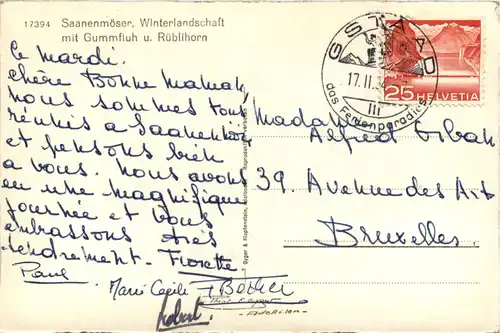 17394 Saanenmöser, Winterlandschaft
mit Gummfluh u. Rüblihorn
Ce mardi.
Chère Bonne Maman,
nous sommes tous
réunis a Saanen
et pensons bien
a vous. Nous avons
eu une magnifique
journée et vous
embrassons très
tendrement. Fiorette
Paul
Marie Cécile
Robert.
GSTAAD
17.II.
III
das Ferienparadies
25 HELVETIA
Madame
Alfred
39. Avenue des Arts
Bruxelles.